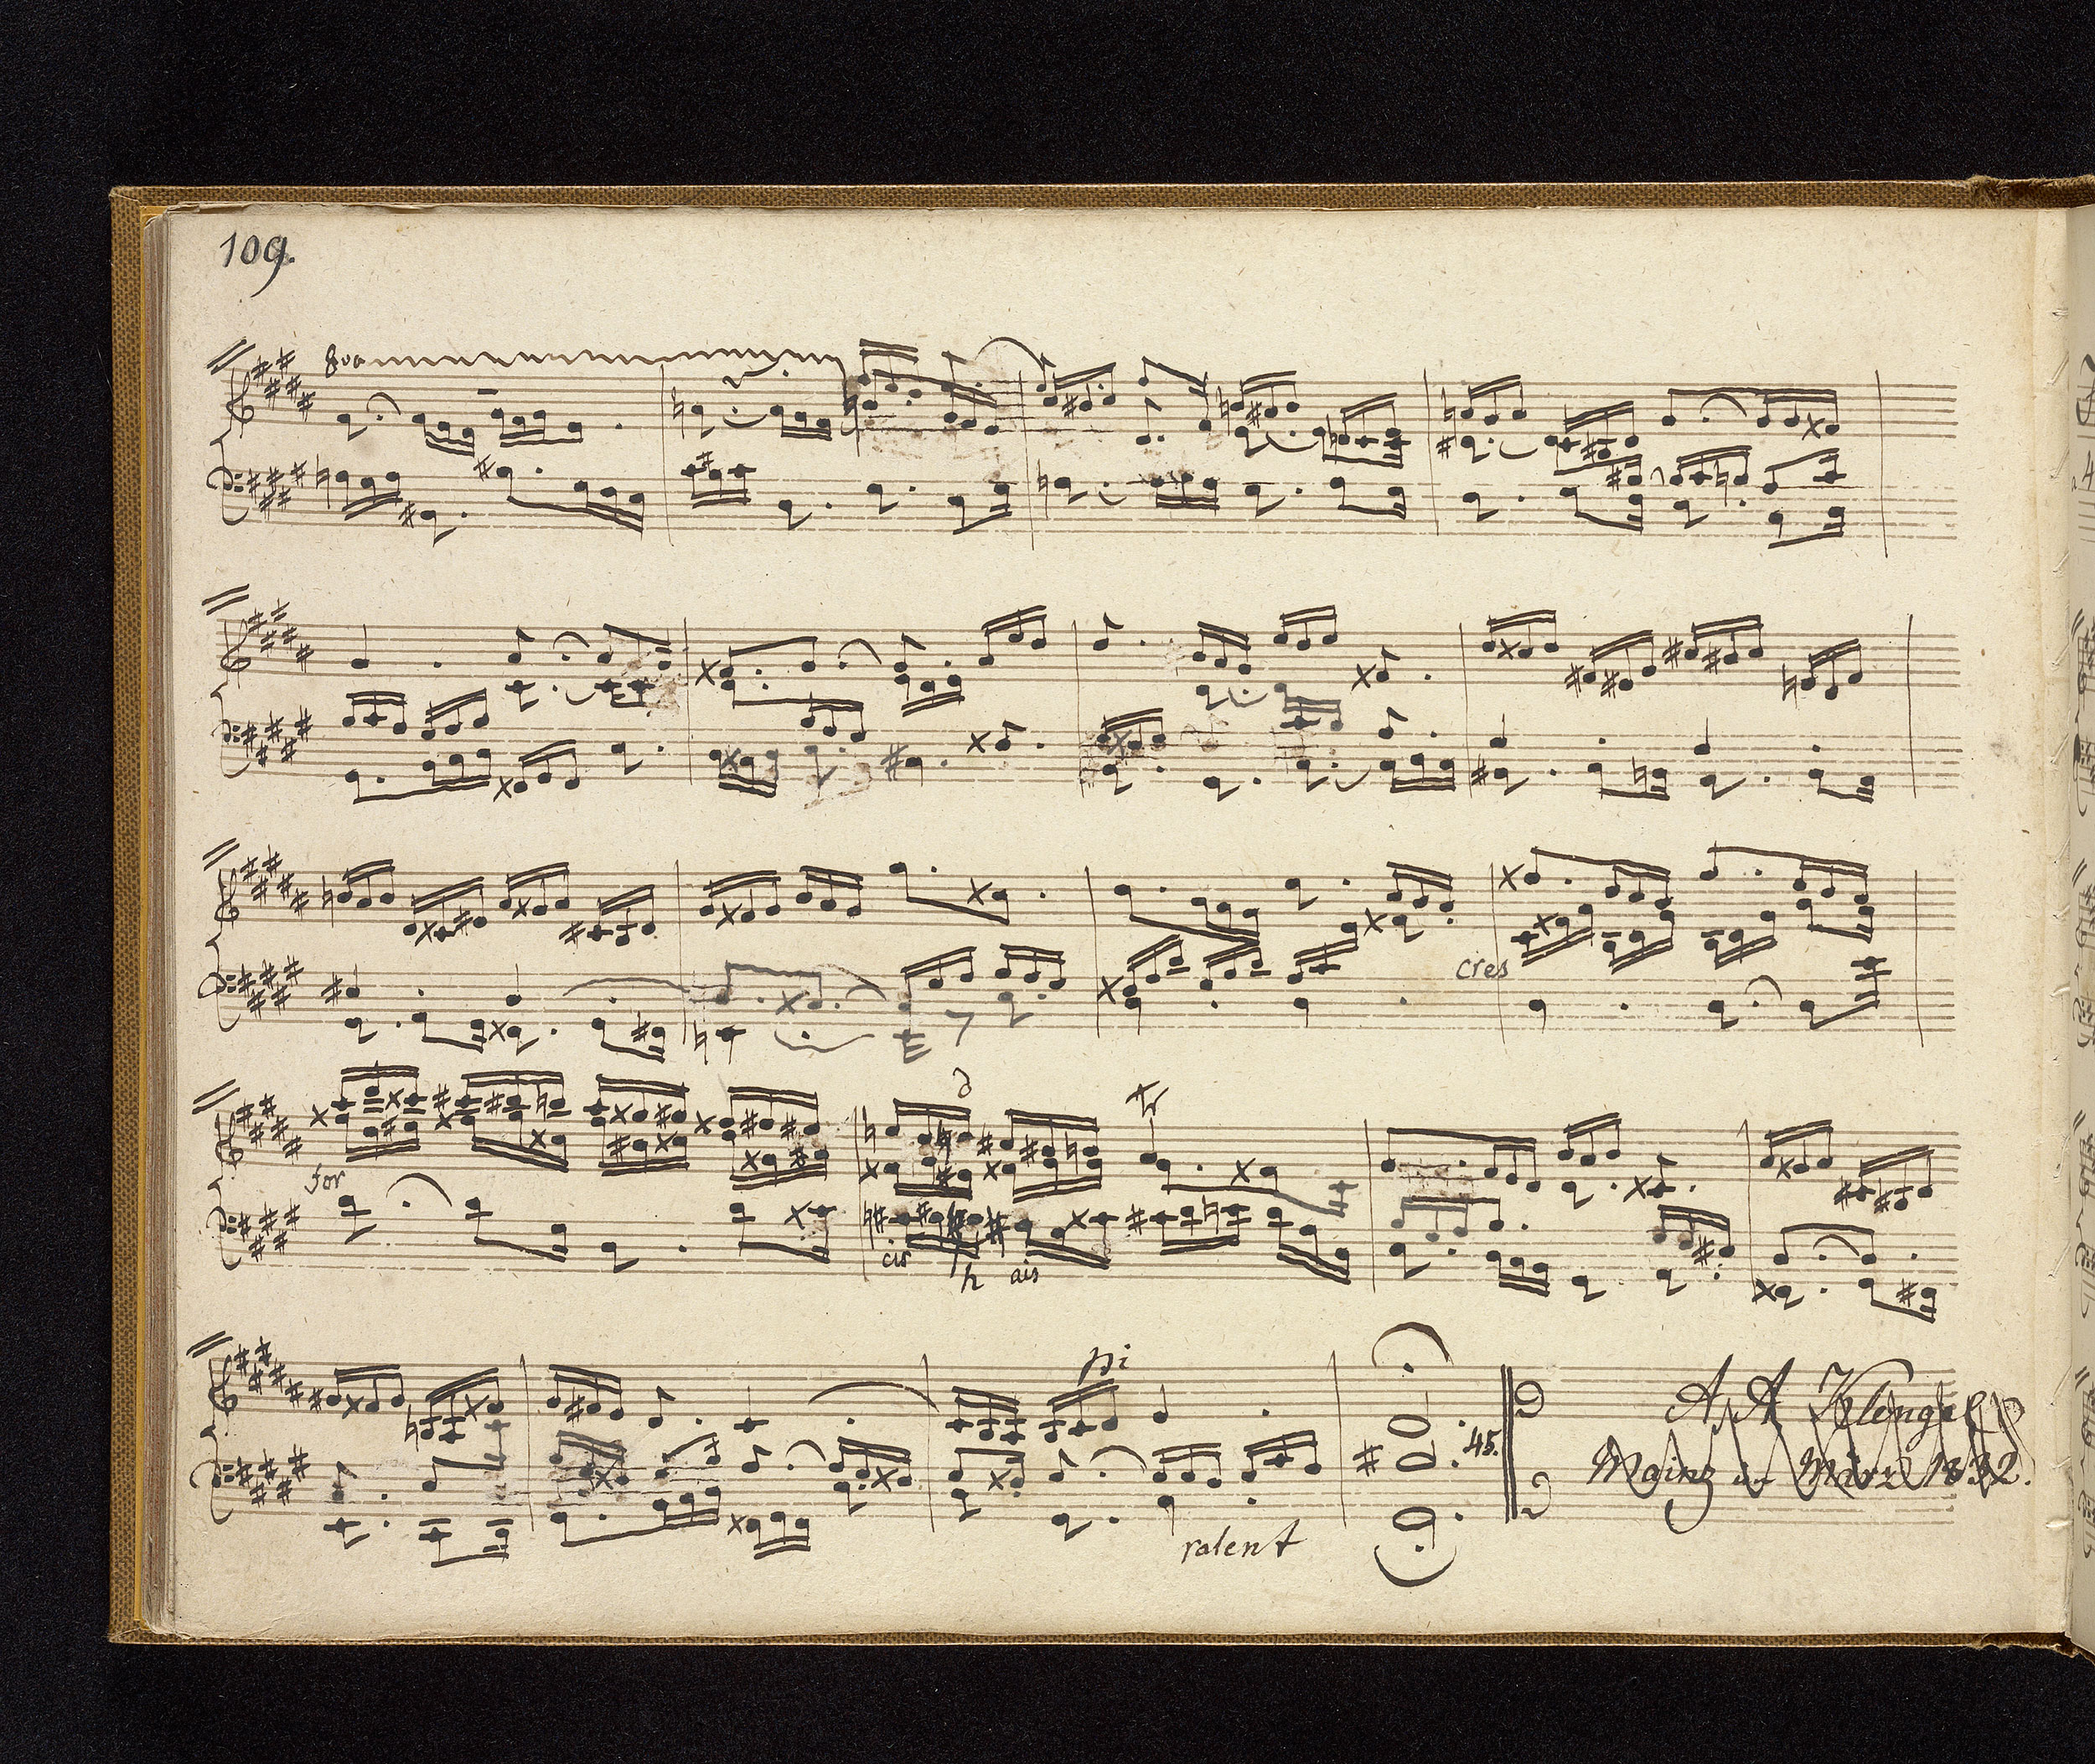 109.
8va
cres
for
d
tr
cis h ais
pi
ralent
45.
A. A. Klengel
Mainz im März 1832.